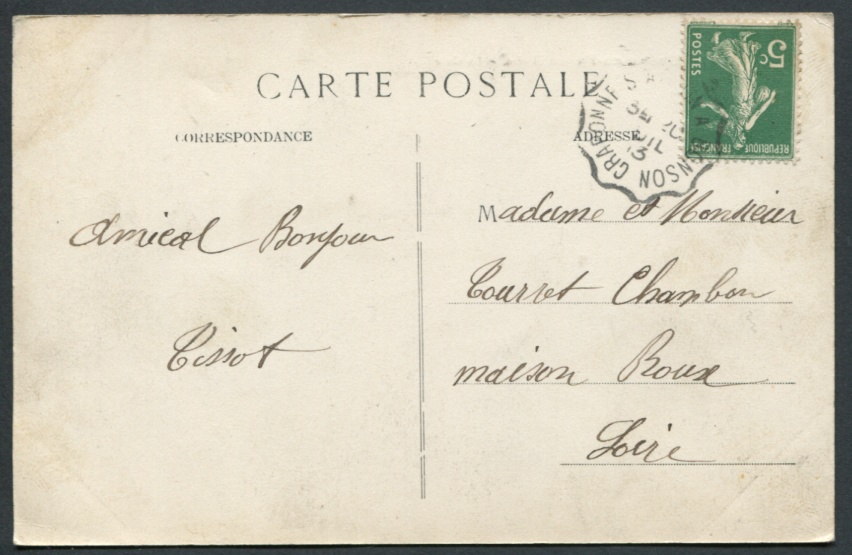 CARTE POSTALE
CORRESPONDANCE
ADRESSE
5c
POSTES
REPUBLIQUE FRANÇAISE
CRAPONNE
13
Amical Bonjour
Tissot
Madame et Monsieur
Tourret Chambon
maison Roux
Loire